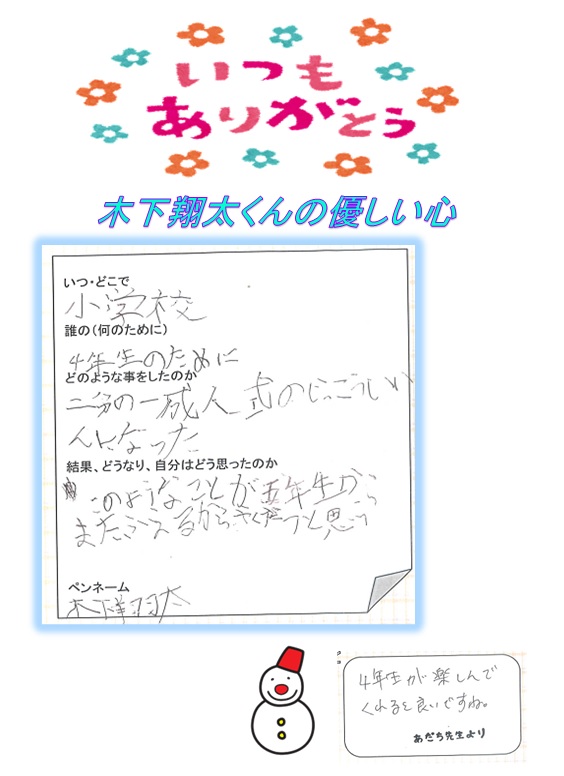 いつも
ありがとう
木下翔太くんの優しい心
いつ・どこで
小学校
誰の(何のために)
4年生のために
どのような事をしたのか
二分の一成人式のじっこうい
んになった
結果、どうなり、自分はどう思ったのか
このようなことが五年生から
またふえるからやくだつと思う
ペンネーム
木下翔太
4年生が楽しんで
くれると良いですね。
あだち先生より